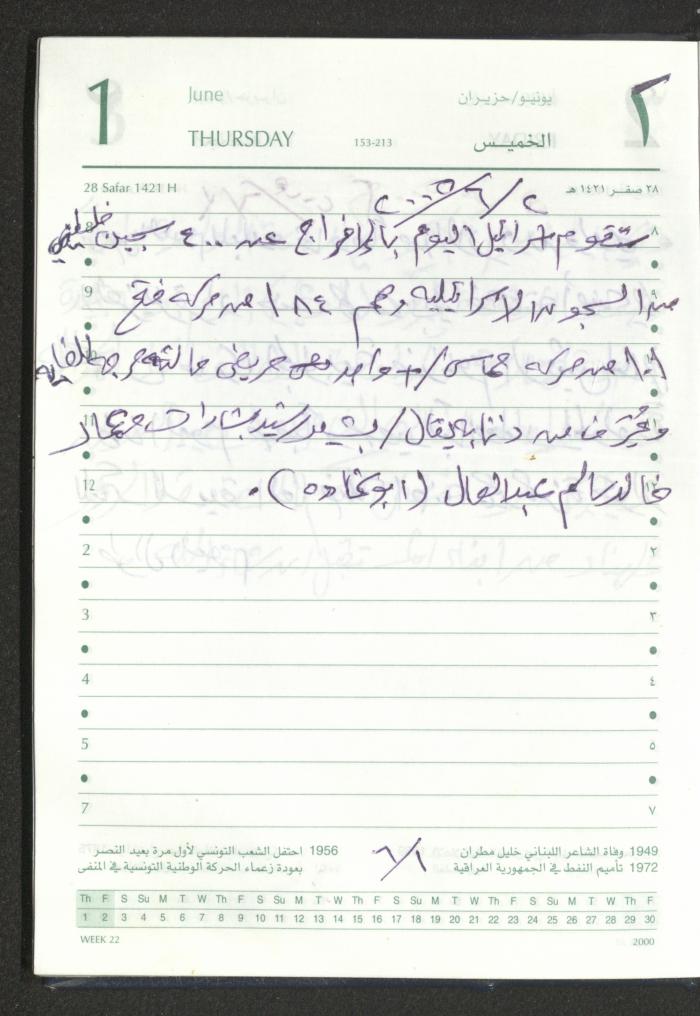 1 June يونيو/حزيران ٢
THURSDAY 153-213 الخميس
28 Safar 1421 H ٢٨ صفر ١٤٢١ هـ
٢٠٠٥/٦/٢
8 ستقوم اسرائيل اليوم بالإفراج عن ٤٠٠ سجين فلسطيني ٨
9 من السجون الاسرائيلية وهم ١٨٤ من حركة فتح ٩
١٠١ من حركة حماس / + واحد
وعُرف من دنابه يقال / بشير رشيد بشارات
12 خالد سالم عبدالعال (ابو عباده). 12
2 ٢
3 ٣
4 ٤
5 ٥
7 ٧
1949 وفاة الشاعر اللبناني خليل مطران 1956 احتفل الشعب التونسي لأول مرة بعيد النصر
1972 تأميم النفط في الجمهورية العراقية بعودة زعماء الحركة الوطنية التونسية في المنفى
٦/١
Th F S Su M T W Th F S Su M T W Th F S Su M T W Th F S Su M T W Th F
1 2 3 4 5 6 7 8 9 10 11 12 13 14 15 16 17 18 19 20 21 22 23 24 25 26 27 28 29 30
WEEK 22 2000